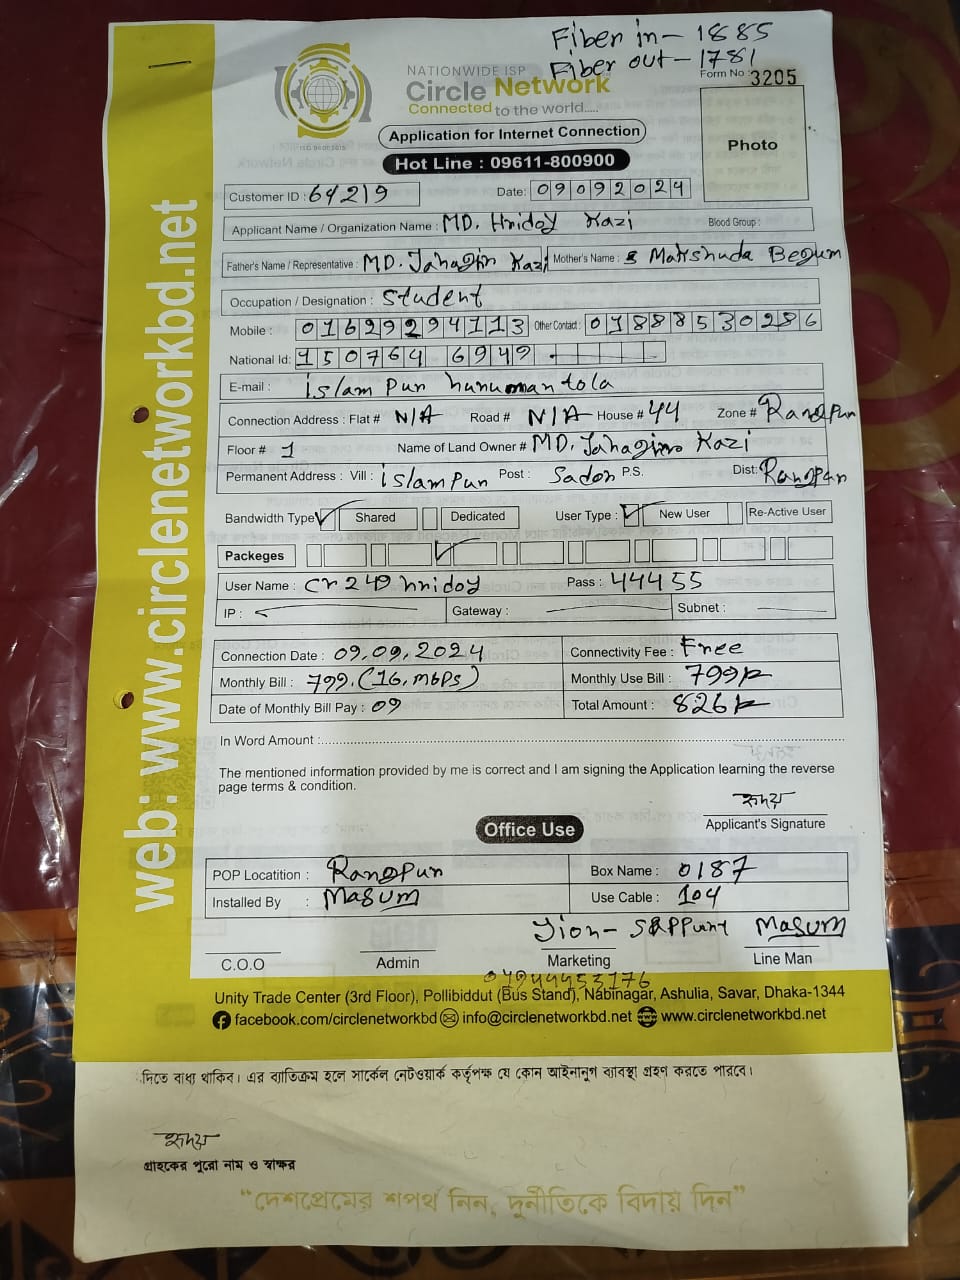 Fiber in - 1885
Fiber out - 1781
NATIONWIDE ISP
Circle Network
Connected to the world.....
Form No : 3205
Application for Internet Connection
Photo
Hot Line : 09611-800900
Customer ID : 64219 Date: 09092024
Applicant Name / Organization Name : MD. Hridoy Kazi Blood Group :
Father's Name / Representative : MD. Jahagir Kazi Mother's Name : Makshuda Begum
Occupation / Designation : Student
Mobile : 01629294113 Other Contact : 01888530286
National Id: 1507646949
E-mail : islam pur hanuman tola
Connection Address : Flat # N/A Road # N/A House # 44 Zone # Rangpur
Floor # 1 Name of Land Owner # MD. Jahagir Kazi
Permanent Address : Vill : islampur Post : Sador P.S. Dist: Rangpur
Bandwidth Type Shared Dedicated User Type : New User Re-Active User
Packeges
User Name : Cr249hridoy Pass : 44455
IP : Gateway : Subnet :
Connection Date : 09.09.2024 Connectivity Fee : Free
Monthly Bill : 799. (16. mbps) Monthly Use Bill : 799
Date of Monthly Bill Pay : 09 Total Amount : 826
In Word Amount :
The mentioned information provided by me is correct and I am signing the Application learning the reverse
page terms & condition.
হৃদয়
Applicant's Signature
Office Use
POP Locatition : Rangpur Box Name : 0187
Installed By : Masum Use Cable : 104
Masum
C.O.O Admin Marketing Line Man
Unity Trade Center (3rd Floor), Pollibiddut (Bus Stand), Nabinagar, Ashulia, Savar, Dhaka-1344
facebook.com/circlenetworkbd info@circlenetworkbd.net www.circlenetworkbd.net
web: www.circlenetworkbd.net
দিতে বাধ্য থাকিব। এর ব্যতিক্রম হলে সার্কেল নেটওয়ার্ক কর্তৃপক্ষ যে কোন আইনানুগ ব্যবস্থা গ্রহণ করতে পারবে।
হৃদয়
গ্রাহকের পুরো নাম ও স্বাক্ষর
“দেশপ্রেমের শপথ নিন, দুর্নীতিকে বিদায় দিন”